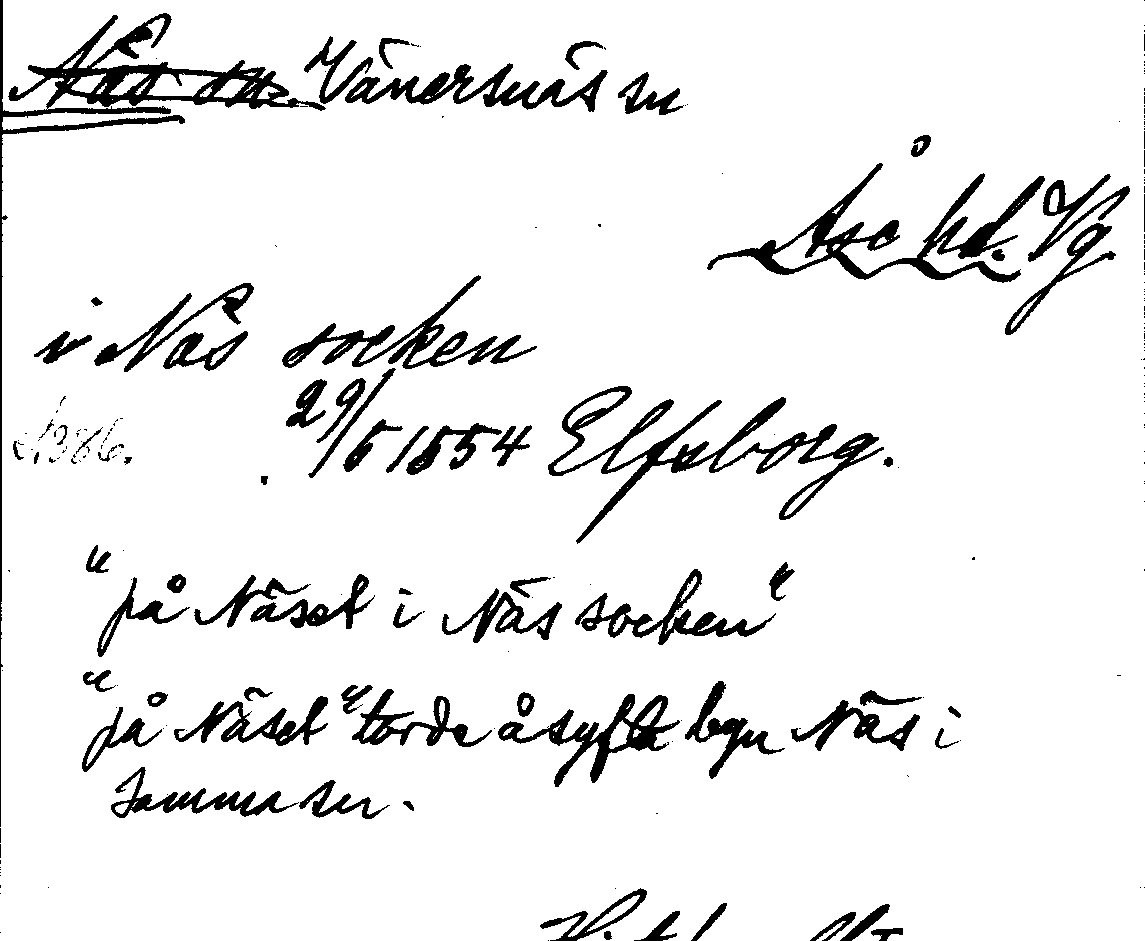 Näs sn. Vänersnäs sn
Åse hd. Vg.
i Näs socken
29/5 1554 Elfsborg.
"på Näset i Näs socken"
"på Näset" torde åsyfta byn Näs i
samma sn.